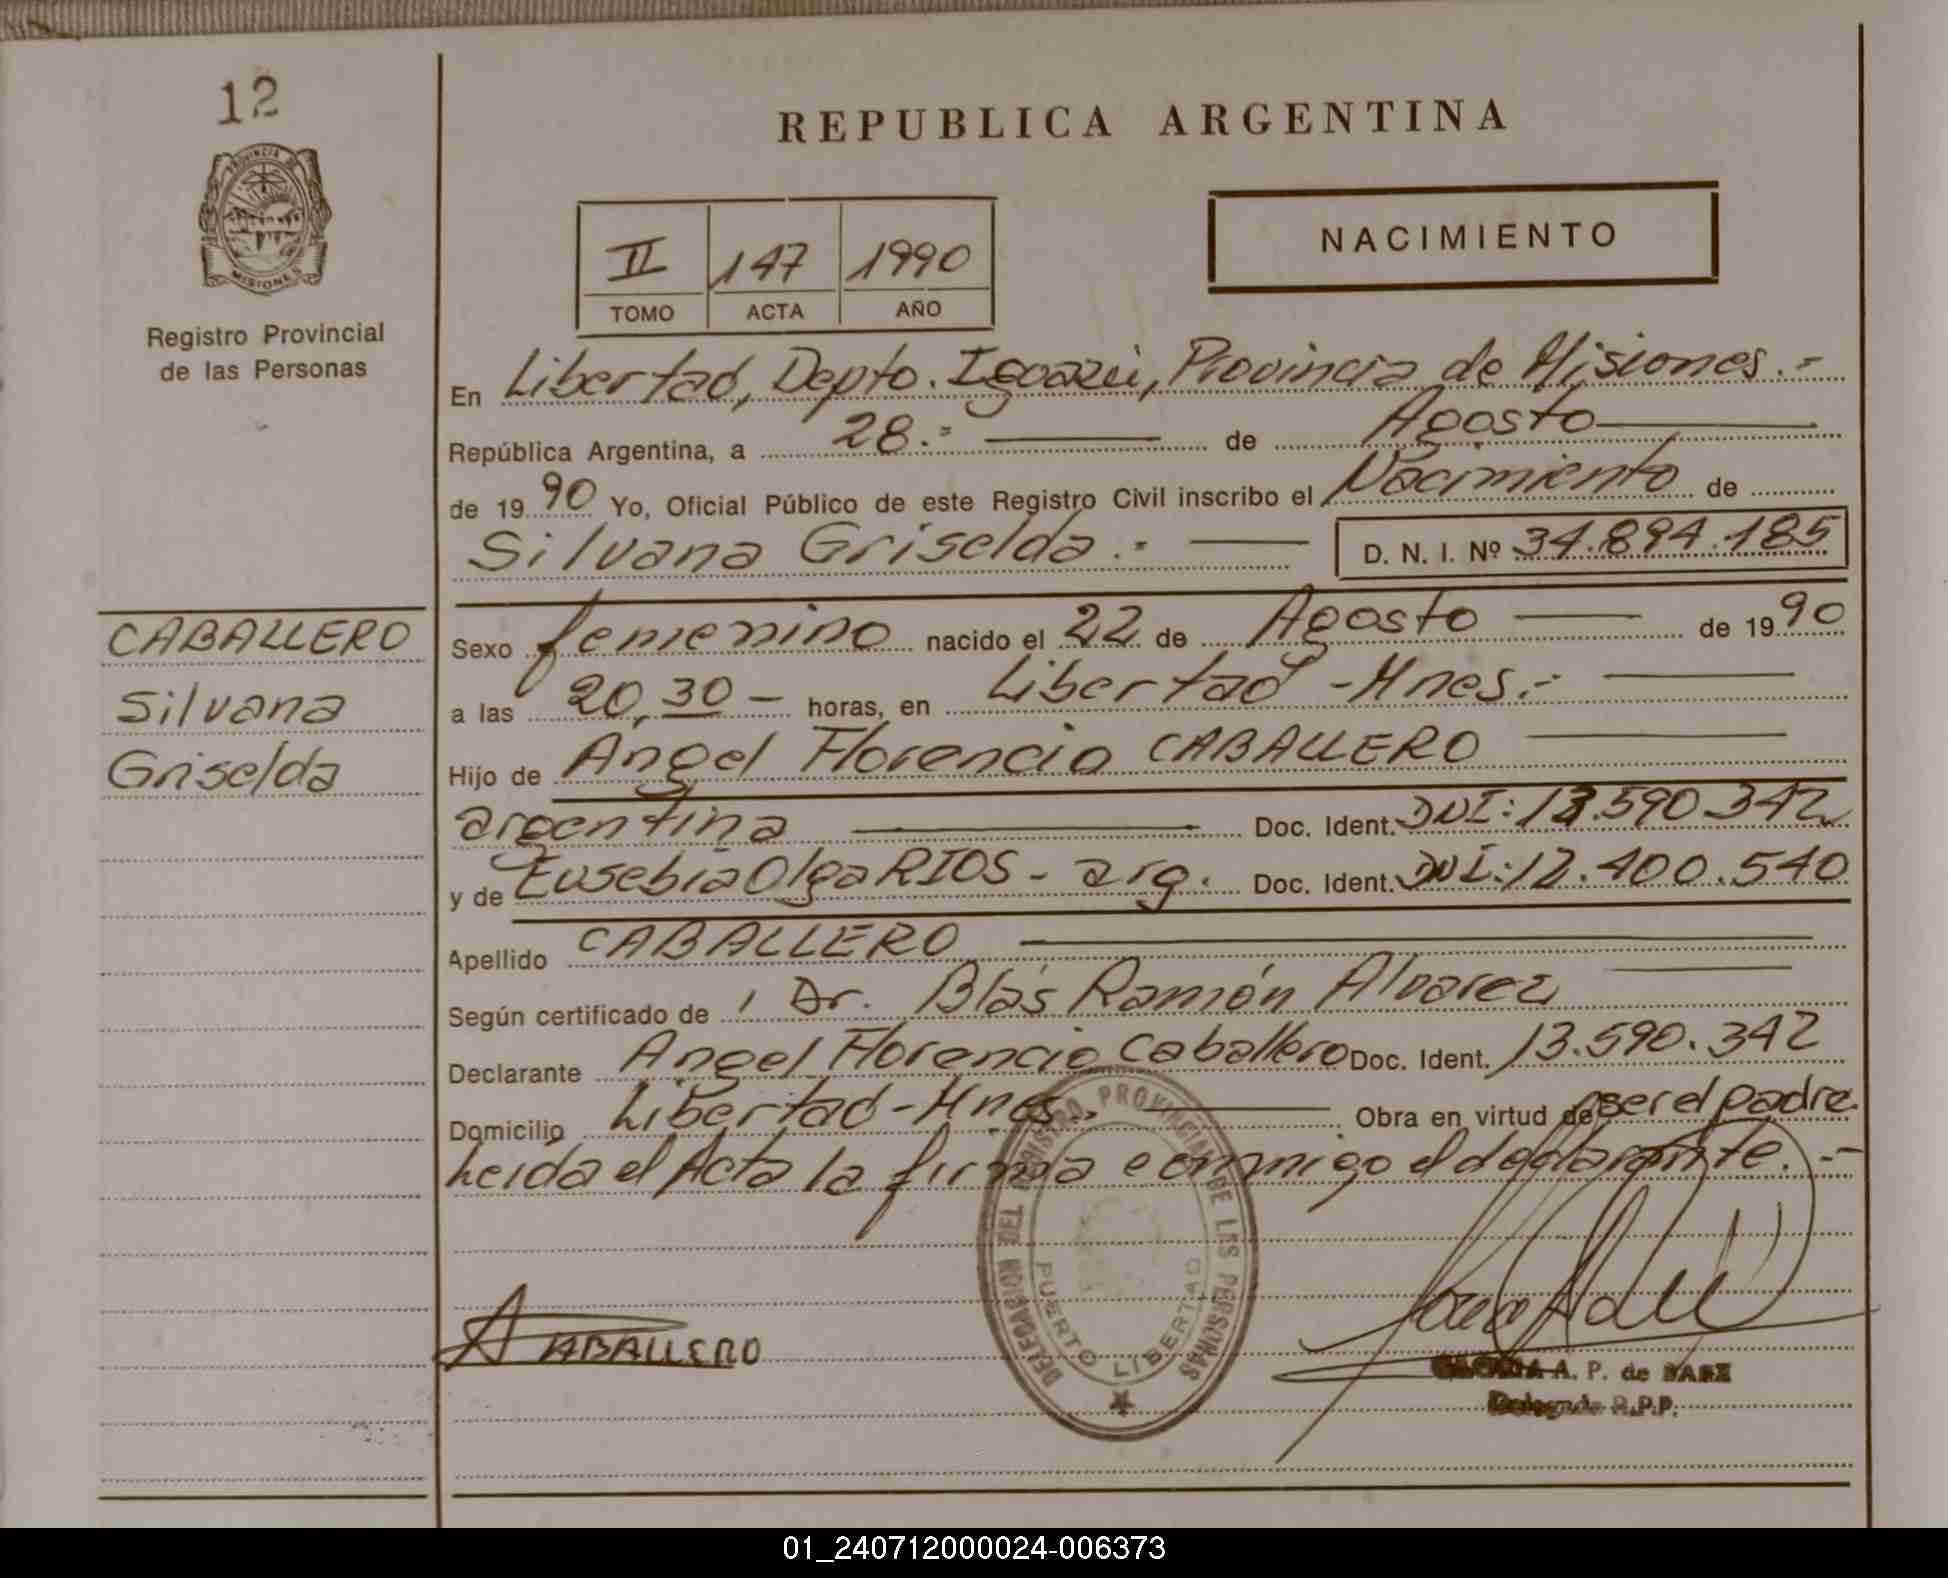 12
PROVINCIA DE
MISIONES
Registro Provincial
de las Personas
CABALLERO
Silvana
Griselda
REPUBLICA ARGENTINA
II 147 1990
TOMO ACTA AÑO
NACIMIENTO
En Libertad, Depto. Iguazú, Provincia de Misiones.-
República Argentina, a 28.- de Agosto
de 1990 Yo, Oficial Público de este Registro Civil inscribo el Nacimiento de
Silvana Griselda.- D. N. I. Nº 34.894.185
Sexo femenino nacido el 22 de Agosto de 1990
a las 20,30 - horas, en Libertad - Mnes.-
Hijo de Angel Florencio CABALLERO
argentina Doc. Ident. DNI: 13.590.342
y de Eusebia Olga RIOS - arg. Doc. Ident. DNI: 12.400.540
Apellido CABALLERO
Según certificado de Dr. Blás Ramón Alvarez
Declarante Angel Florencio Caballero Doc. Ident. 13.590.342
Domicilio Libertad - Mnes. Obra en virtud de ser el padre.
Leída el Acta la firma conmigo el declarante.-
DELEGACION DEL REGISTRO PROVINCIAL DE LAS PERSONAS
PUERTO LIBERTAD
A CABALLERO
A. P. de BAEZ
R.P.P.
01_240712000024-006373